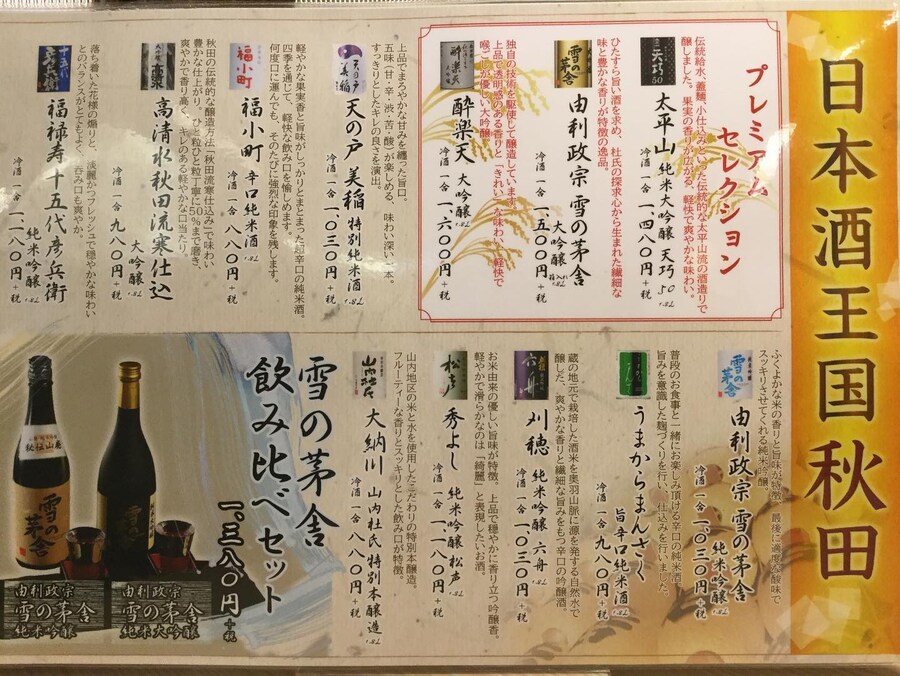 日本酒王国秋田
プレミアム
セレクション
伝統給水、蓋麹、小仕込みといった伝統的な太平山流の酒造りで
醸しました。果実の香りが広がる、軽快で爽やかな味わい。
太平山 純米大吟醸 天巧50
冷酒 一合 一、四八〇円+税
ひたすら旨い酒を求め、杜氏の探求心から生まれた繊細な
味と豊かな香りが特徴の逸品。
由利政宗 雪の茅舎
大吟醸
冷酒 一合 一、五〇〇円+税
独自の技術を駆使して醸造しています。
上品で透明感のある香りと「きれい」な味わい、軽快で
喉ごしが優しい大吟醸
酔楽天 大吟醸
冷酒 一合 一、六〇〇円+税
上品でまろやかな甘みを纏った旨口。
五味(甘・辛・渋・苦・酸)が楽しめる、味わい深い一本。
すっきりとしたキレの良さを演出。
天の戸 美稲 特別純米酒
冷酒 一合 一、〇三〇円+税
軽やかな果実香と旨味がしっかりとまとまった超辛口の純米酒。
四季を通じて、軽快な飲み口を愉しめます。
何度口に運んでも、そのたびに強烈な印象を残します。
福小町 辛口純米酒
冷酒 一合 八八〇円+税
秋田の伝統的な醸造方法「秋田流寒仕込み」で味わい
豊かな仕上がり。ひと粒ひと粒丁寧に50%まで磨き、
爽やかで香り高く、キレのある軽やかな口当たり。
高清水秋田流寒仕込
大吟醸
冷酒 一合 九八〇円+税
落ち着いた花様の煽りと、淡麗かつフレッシュで穏やかな味わい
とのバランスがとてもよく、呑み口も爽やか。
福禄寿十五代彦兵衛
純米吟醸
冷酒 一合 一、一八〇円+税
ふくよかな米の香りと旨味が特徴、最後に適度な酸味で
スッキリさせてくれる純米吟醸。
由利政宗 雪の茅舎
純米吟醸
冷酒 一合 一、〇三〇円+税
普段のお食事と一緒にお楽しみ頂ける辛口の純米酒。
旨みを意識した麹づくりを行い、仕込みを行いました。
うまからまんさく
旨辛口純米酒
冷酒 一合 九八〇円+税
蔵の地元で栽培した酒米を奥羽山脈に源を発する自然水で
醸した、爽やかな香りと繊細な旨みをもつ辛口の吟醸酒
刈穂 純米吟醸 六舟
冷酒 一合 一、〇三〇円+税
お米由来の優しい旨味が特徴。上品で穏やかに香り立つ吟醸香。
軽やかで滑らかなのは「綺麗」と表現したいお酒。
秀よし 純米吟醸松声
冷酒 一合 一、一八〇円+税
山内地区の米と水を使用したこだわりの特別本醸造。
フルーティーな香りとスッキリとした飲み口が特徴。
大納川 山内杜氏特別本醸造
冷酒 一合 八八〇円+税
雪の茅舎
飲み比べセット
一、三八〇円+税
由利政宗
雪の茅舎
純米吟醸
由利政宗
雪の茅舎
純米大吟醸